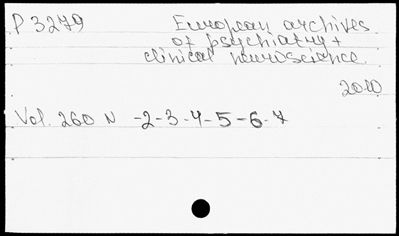 P 3279 European archives
of psychiatry +
clinical neuroscience.
2010
Vol. 260 N -2-3-4-5-6-7